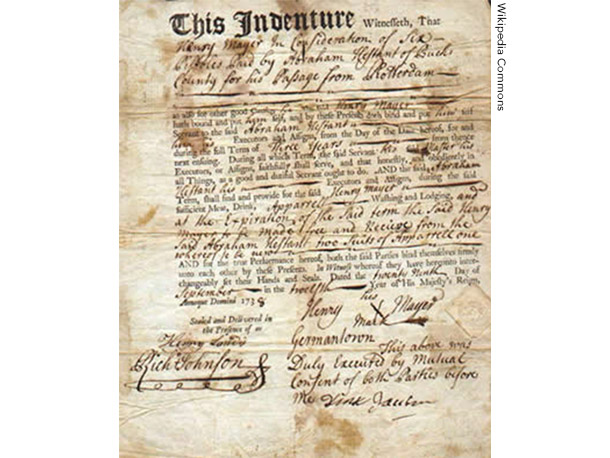 This Indenture Witnesseth, That
Henry Mayer In Consideration of Six
Pistoles Paid by Abraham Hestant of Bucks
County for his Passage from Rotterdam
as also for other good Causes he the said Henry Mayer
hath bound and put him self, and by these Presents doth bind and put him self
Servant to the said Abraham Hestant
Executors and Assigns, from the Day of the Date hereof, for and
during the full Term of Three Years from thence
next ensuing. During all which Term, the said Servant his said Master his
Executors, or Assigns, faithfully shall serve, and that honestly, and obediently in
all Things, as a good and dutiful Servant ought to do. AND the said Abraham
Hestant his Executors and Assigns, during the said
Term, shall find and provide for the said Henry Mayer
sufficient Meat, Drink, Apparrell Washing and Lodging, and
at the Expiration of the Said term the Said Henry
Mayer to be made free and Recieve from the
Said Abraham Hestant two Suits of Apparrell one
whereof to be new
AND for the true Performance hereof, both the said Parties bind themselves firmly
unto each other by these Presents. In Witness whereof they have hereunto inter-
changeably set their Hands and Seals. Dated the twenty Ninth Day of
September in the twelfth Year of His Majesty's Reign,
Annoque Domini 1738
Sealed and Delivered in
the Presence of us
his
Henry X Mayer
mark
Rich Johnson
Germantown
This above was
Duly Executed by Mutual
Consent of both Parties before
me
Wikipedia Commons